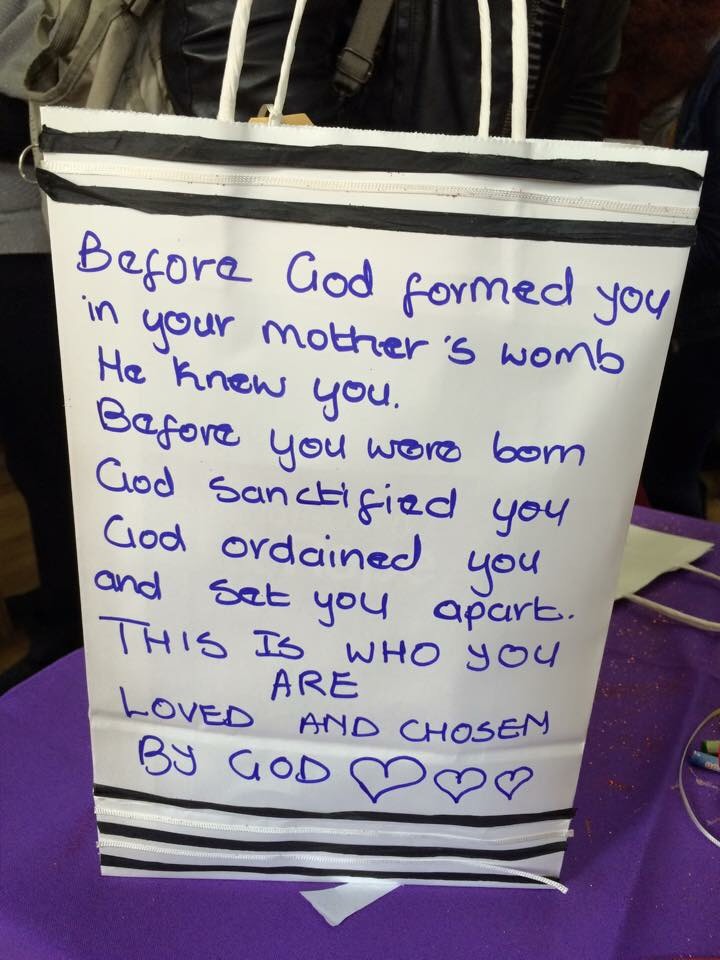 Before God formed you
in your mother's womb
He knew you.
Before you were born
God sanctified you
God ordained you
and set you apart.
THIS IS WHO YOU
ARE
LOVED AND CHOSEN
BY GOD ♡♡♡